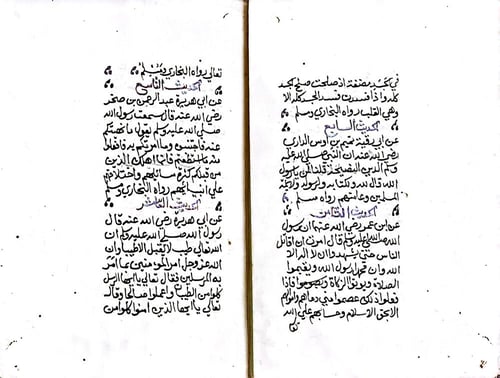 في الجسد مضغة اذا صلحت صلح الجسد
كله واذا فسدت فسد الجسد كله الا
وهي القلب رواه البخاري ومسلم
الحديث السابع
عن ابي رقية تميم بن اوس الداري
رضي الله عنه ان النبي صلى الله عليه
وسلم الدين النصيحة قلنا لمن يا رسول
الله قال لله ولكتابه ولرسوله ولائمة
المسلمين وعامتهم رواه مسلم
الحديث الثامن
عن ابن عمر رضي الله عنهما ان رسول
الله صلى الله عليه وسلم قال امرت ان اقاتل
الناس حتى يشهدوا ان لا اله الا
الله وان محمدا رسول الله ويقيموا
الصلاة ويوتوا الزكاة فاذا
فعلوا ذلك عصموا مني دماهم واموالهم
الا بحق الاسلام وحسابهم على الله
تعالى رواه البخاري ومسلم
الحديث التاسع
عن ابي هريرة عبد الرحمن بن صخر
رضي الله عنه قال سمعت رسول الله
صلى الله عليه وسلم يقول ما نهيتكم
عنه فاجتنبوه وما امرتكم به فافعلوا
منه ما استطعتم فانما اهلك الذين
من قبلكم كثرة مسائلهم واختلافهم
على انبيائهم رواه البخاري ومسلم
الحديث العاشر
عن ابي هريرة رضي الله عنه قال
رسول الله صلى الله عليه وسلم ان
الله تعالى طيب لا يقبل الا طيبا وان
الله عز وجل امر المؤمنين بما امر
به المرسلين فقال تعالى يا ايها الرسل
كلوا من الطيبات واعملوا صالحا وقال
تعالى يا ايها الذين امنوا كلوا من